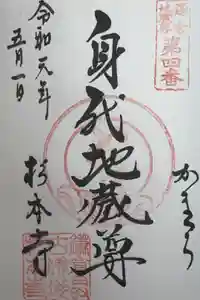 鎌倉
地蔵尊
第四番
かまくら
身代地蔵尊
令和元年
五月一日
杉本寺